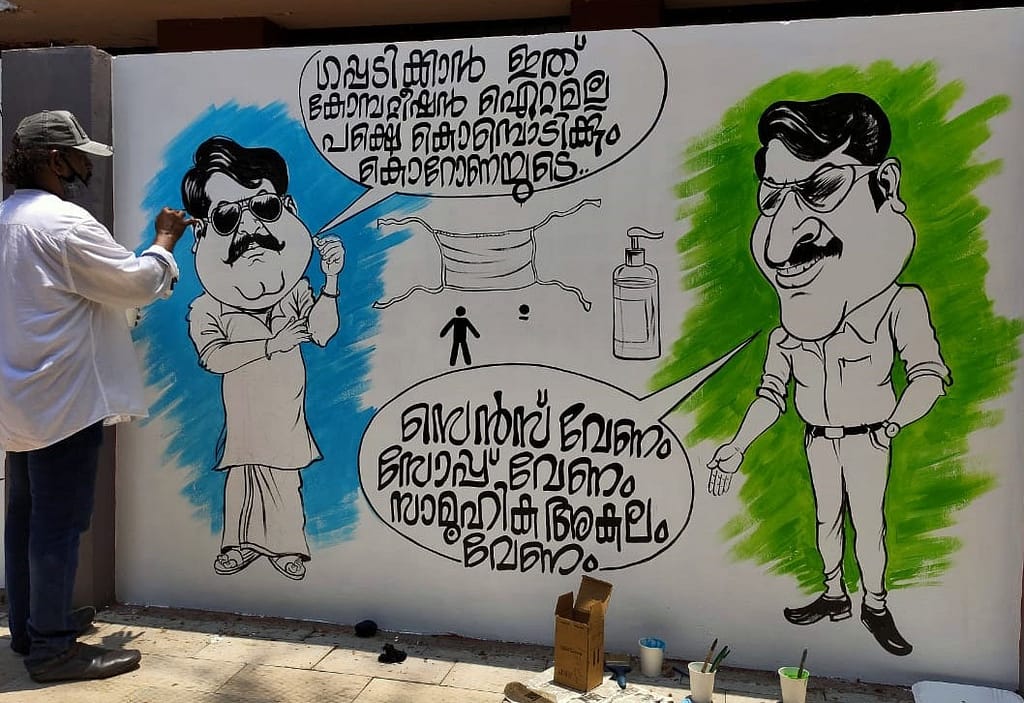 ഗപ്പടിക്കാൻ ഇത്
കോമ്പറ്റീഷൻ ഐറ്റമല്ല
പക്ഷെ കൊമ്പൊടിക്കും
കൊറോണയുടെ..
സെൻസ് വേണം
സോപ്പ് വേണം
സാമൂഹിക അകലം
വേണം